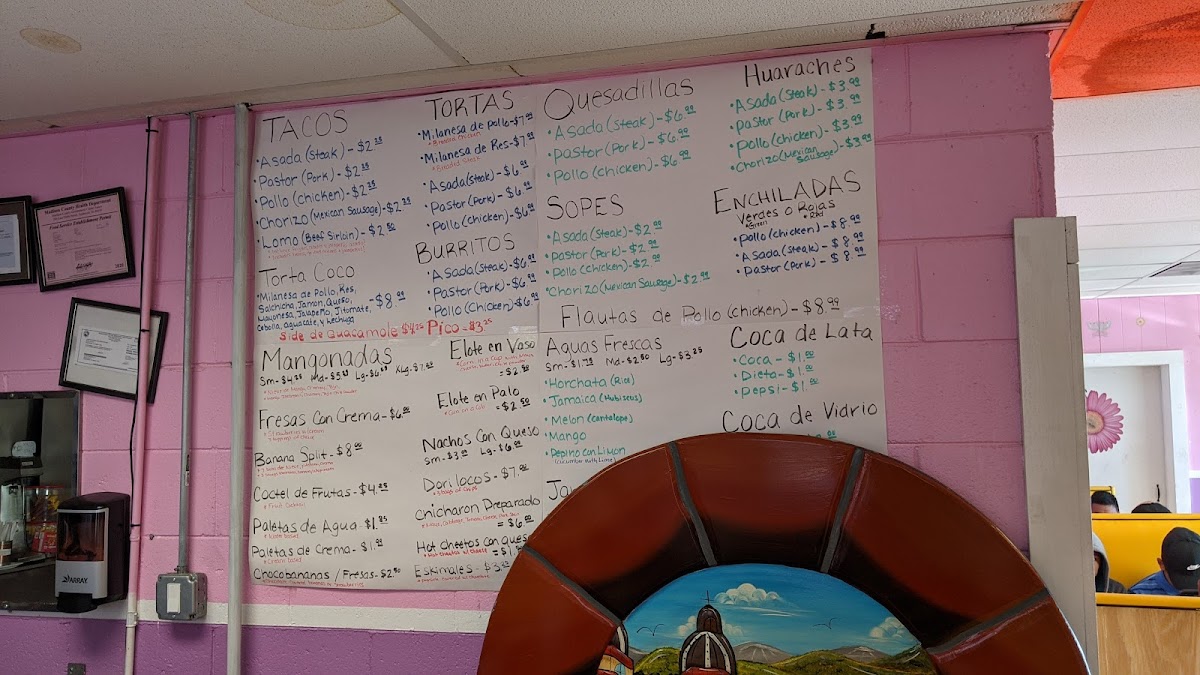 TACOS
• Asada (Steak) - $2.25
• Pastor (Pork) - $2.25
• Pollo (chicken) - $2.25
• Chorizo (Mexican Sausage) - $2.25
• Lomo (Beef Sirloin) - $2.50
Torta Coco
• Milanesa de Pollo, Res,
Salchicha, Jamon, Queso,
Mayonesa, Jalapeño, Jitomate,
Cebolla, aguacate, y Lechuga
- $8.99
Side de Guacamole $4.25 Pico - $3.25
TORTAS
• Milanesa de pollo - $7.99
• Breaded Chicken
• Milanesa de Res - $7.99
• Breaded Steak
• Asada (Steak) - $6.99
• Pastor (Pork) - $6.99
• Pollo (chicken) - $6.99
BURRITOS
• Asada (Steak) - $6.99
• Pastor (Pork) - $6.99
• Pollo (Chicken) - $6.99
Quesadillas
• Asada (Steak) - $6.99
• Pastor (Pork) - $6.99
• Pollo (chicken) - $6.99
SOPES
• Asada (Steak) - $2.99
• Pastor (Pork) - $2.99
• Pollo (Chicken) - $2.99
• Chorizo (Mexican Sausage) - $2.99
Huaraches
• Asada (Steak) - $3.99
• Pastor (Pork) - $3.99
• Pollo (chicken) - $3.99
• Chorizo (Mexican Sausage) - $3.99
ENCHILADAS
Verdes o Rojas
• Green • Red
• Pollo (chicken) - $8.99
• Asada (Steak) - $8.99
• Pastor (Pork) - $8.99
Flautas de Pollo (chicken) - $8.99
Mangonadas
Sm - $4.25 Md - $5. Lg - $6. XLg - $7.
Fresas Con Crema - $6.00
• Strawberries n Cream
Banana Split - $8.00
Coctel de Frutas - $4.25
• Fruit Cocktail
Paletas de Agua - $1.85
• Water based
Paletas de Crema - $1.99
• Cream based
Chocobananas / Fresas - $2.50
Elote en Vaso
• Corn in a Cup
= $2.50
Elote en Palo
• Corn on a Cob
= $2.50
Nachos Con Queso
Sm - $3.00 Lg - $6.00
Dorilocos - $7.00
Chicharon Preparado
= $6.00
Hot Cheetos con Queso
• Hot Cheetos w/ Cheese
Eskimales -
Aguas Frescas
Sm - $1.75 Md - $2.50 Lg - $3.25
• Horchata (Rice)
• Jamaica (Hubiscus)
• Melon (cantalope)
• Mango
• Pepino Con Limon
(cucumber with Lime)
Coca de Lata
• Coca - $1.00
• Dieta - $1.00
• Pepsi - $1.00
Coca de Vidrio
Madison County Health Department
Food Service Establishment Permit
ARRAY